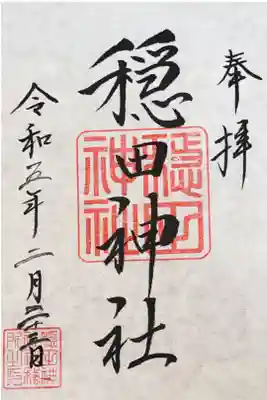 奉拝
穏田神社
穏田神社
令和五年二月日